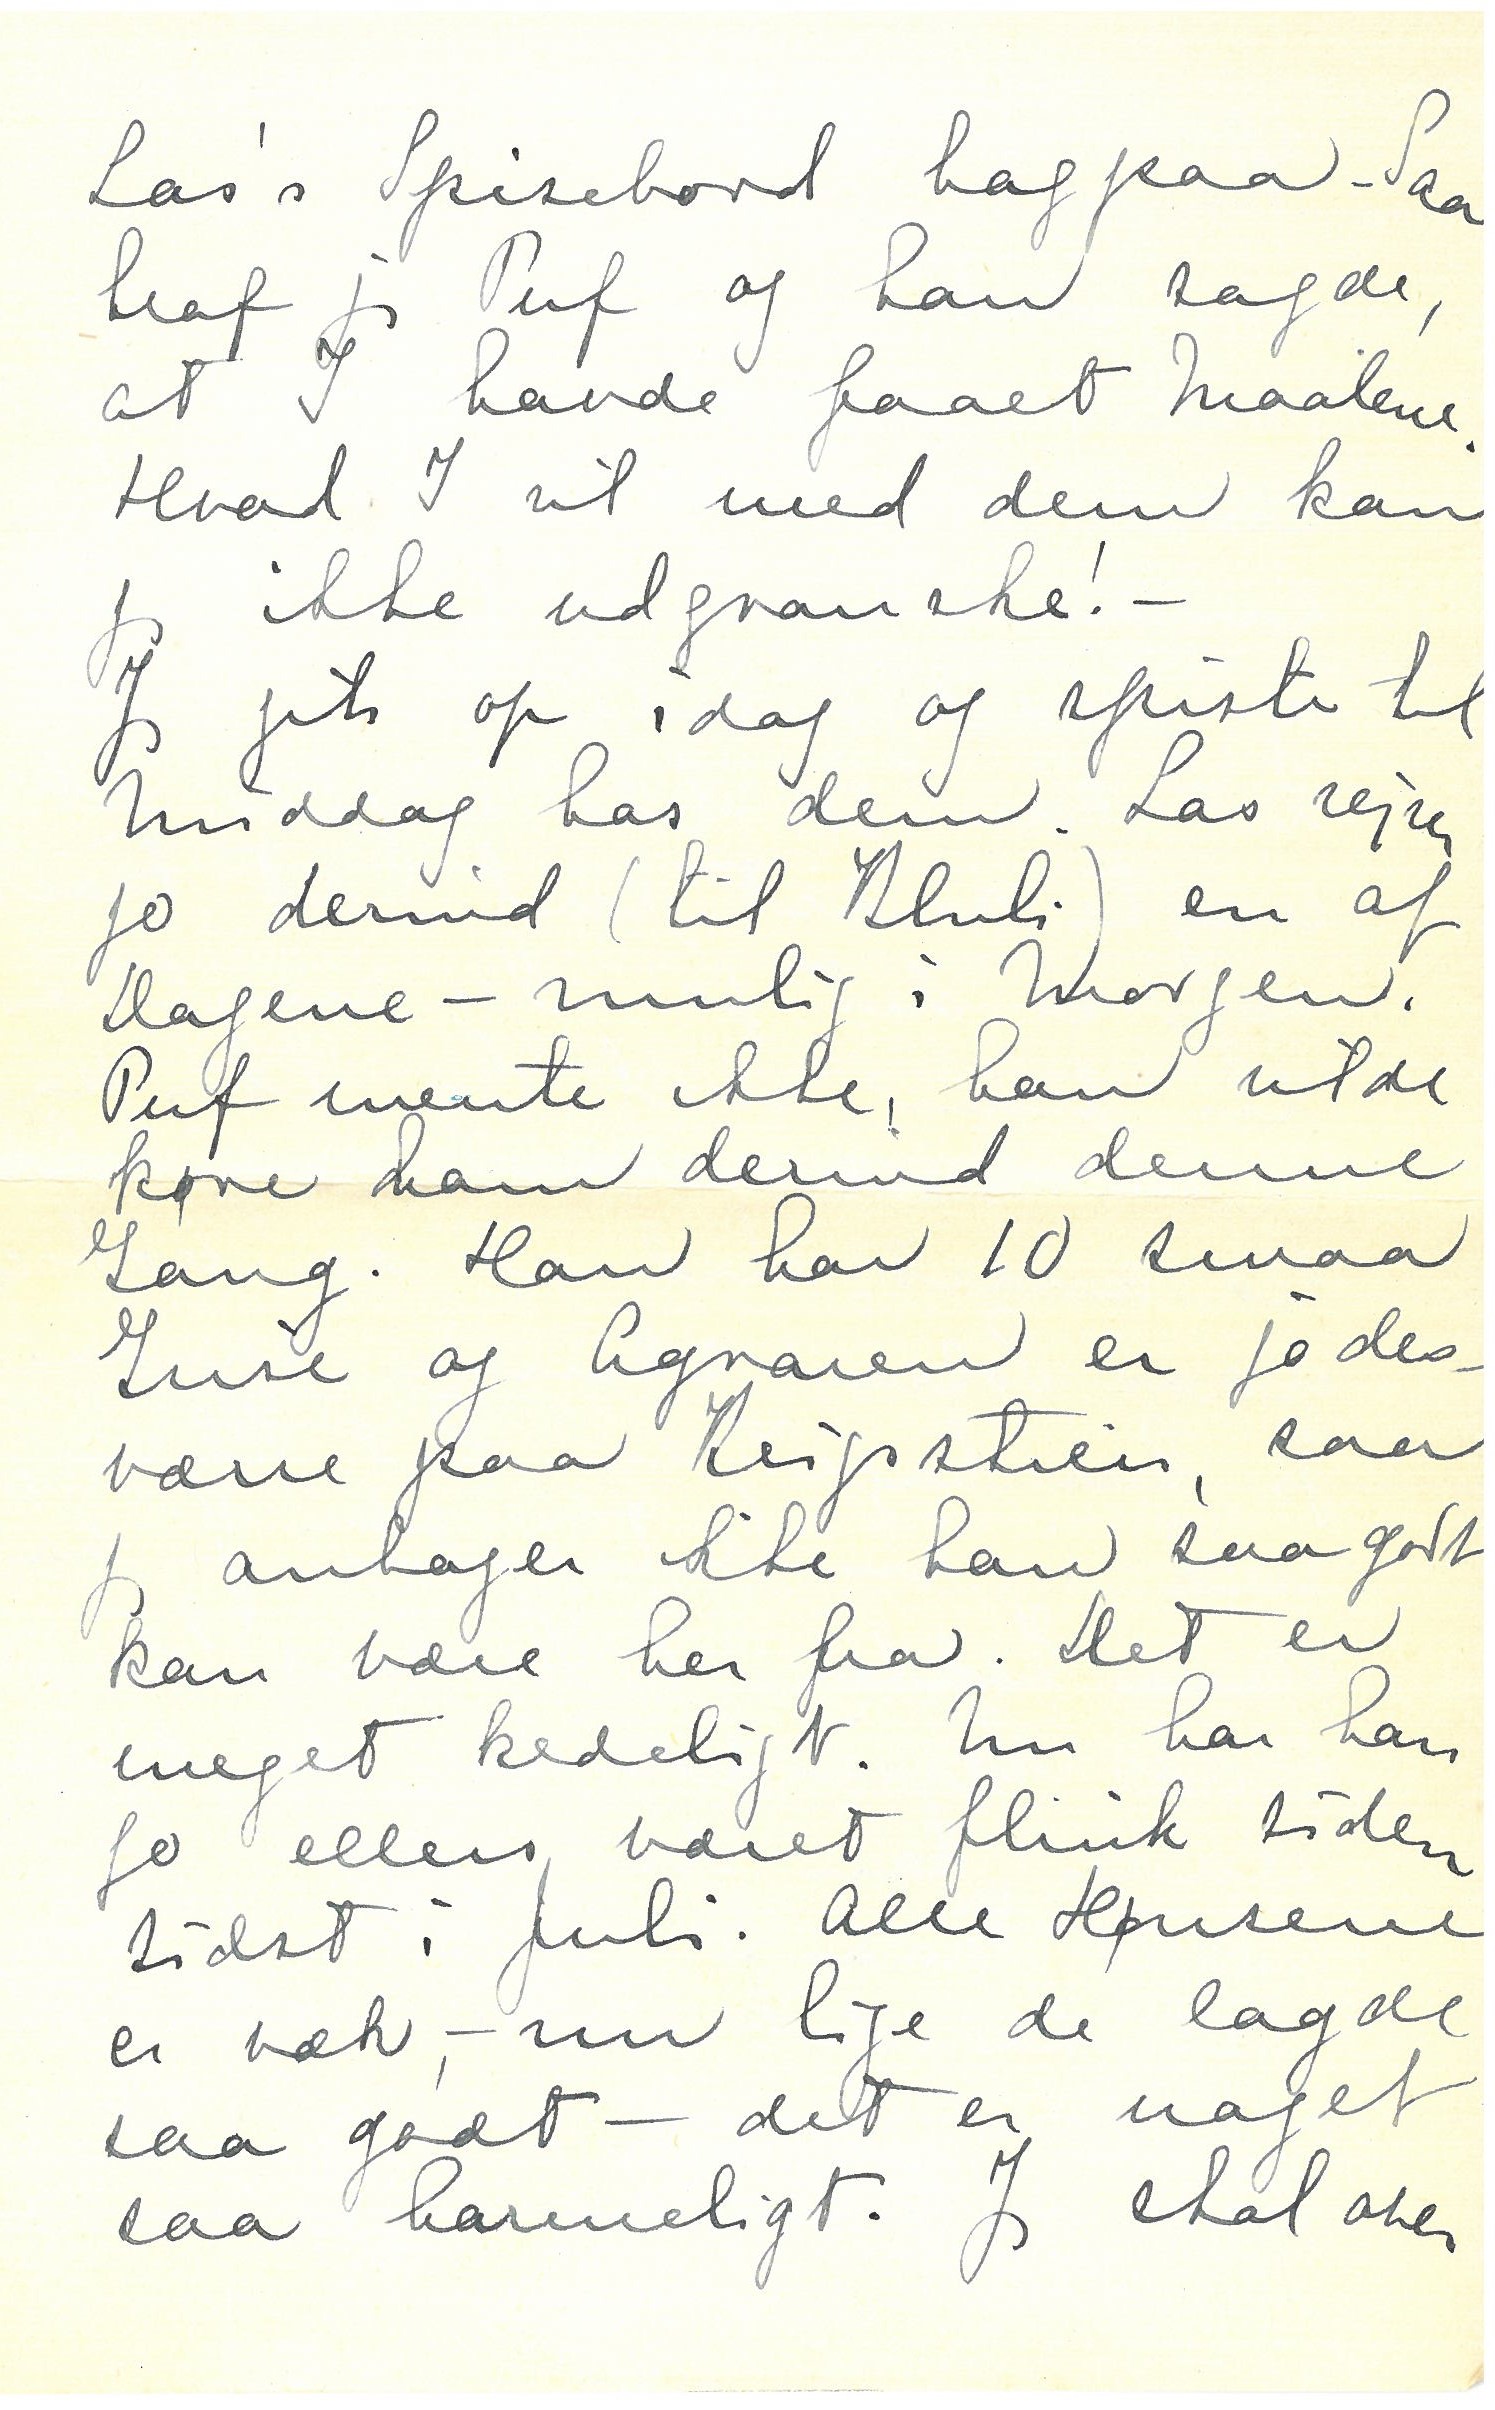 Las's Spisebord bagpaa - Saa
traf jg Puf og han sagde,
at I havde faaet Maalene.
Hvad I vil med dem kan
jg ikke udgranske! -
Jg gik op idag og spiste til
Middag hos dem. Las rejser
jo derind (til Klubi) en af
Dagene - mulig i Morgen.
Puf mente ikke, han vilde
køre ham derind denne
Gang. Han har 10 smaa
Grise og Agraren er jo des-
værre paa Krigsstien, saa
jg antager ikke han saa godt
kan være her fra. Det er
meget kedeligt. Nu har han
jo ellers været flink siden
sidst i Juli. Alle Hønsene
er væk, - nu lige de lagde
saa godt - det er noget
saa harmeligt. Jg skal over